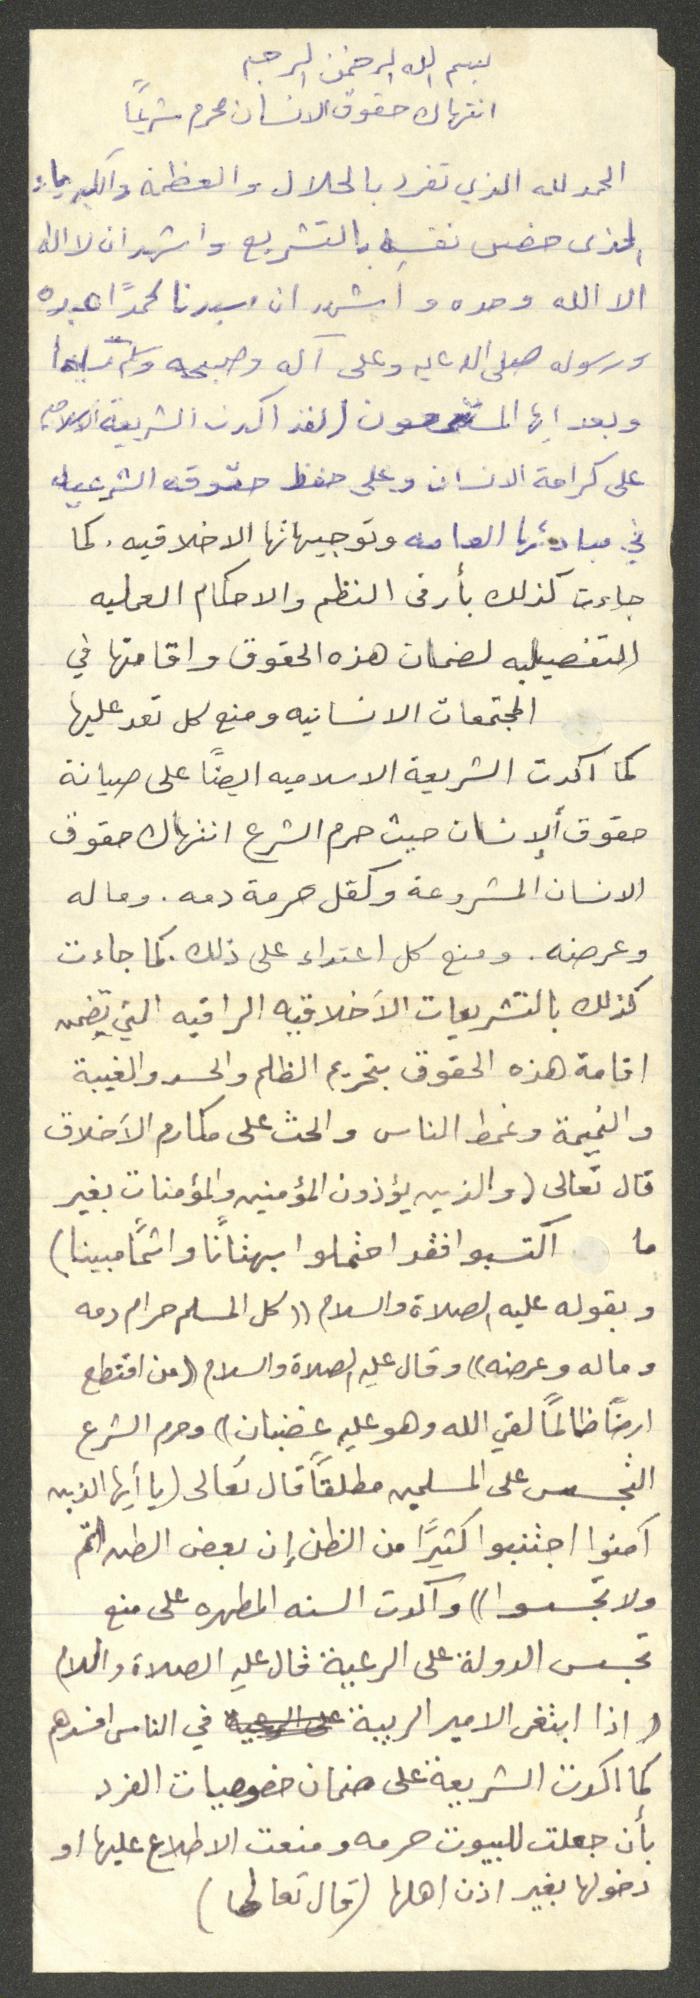 بسم الله الرحمن الرحيم
انتهاك حقوق الانسان محرم شرعًا
الحمد لله الذي تفرد بالجلال والعظمة والكبرياء
الذى خص نفسه بالتشريع واشهد ان لا اله
الا الله وحده وأشهد ان سيدنا محمدًا عبده
ورسوله صلى الله عليه وعلى آله وصحبه وسلم
وبعد ايها المستمعون (لقد اكدت الشريعة الاسلاميه
على كرامة الانسان وعلى حفظ حقوقه الشرعيه
في مبادئها العامه وتوجيهاتها الاخلاقيه. كما
جاءت كذلك بأرقى النظم والاحكام العمليه
التفصيليه لضمان هذه الحقوق واقامتها في
المجتمعات الانسانيه ومنع كل تعد عليها
كما اكدت الشريعة الاسلاميه ايضًا على صيانة
حقوق ألإنسان حيث حرم الشرع انتهاك حقوق
الانسان المشروعة وكفل حرمة دمه. وماله
وعرضه. ومنع كل اعتداء على ذلك. كما جاءت
كذلك بالتشريعات الأخلاقيه الراقيه التي تضمن
اقامة هذه الحقوق بتحريم الظلم والحسد والغيبة
والنميمة وغمط الناس والحث على مكارم الأخلاق
قال تعالى (والذين يؤذون المؤمنين والمؤمنات بغير
ما اكتسبوا فقد احتملوا بهتانًا واثمًا مبينا)
وبقوله عليه الصلاة والسلام ((كل المسلم حرام دمه
وماله وعرضه)) وقال عليه الصلاة والسلام ((من اقتطع
ارضًا ظالمًا لقي الله وهو عليه غضبان)) وحرم الشرع
التجسس على المسلمين مطلقًا قال تعالى (يا أيها الذين
آمنوا اجتنبوا كثيرًا من الظن إن بعض الظن اثم
ولا تجسسوا)) واكدت السنه المطهره على منع
تجسس الدولة على الرعية قال عليه الصلاة والسلام
((اذا ابتغى الامير الريبة على الرعية في الناس افسدهم
كما اكدت الشريعة على ضمان خصوصيات الفرد
بأن جعلت للبيوت حرمه ومنعت الاطلاع عليها او
دخولها بغير اذن اهلها (قال تعالى)